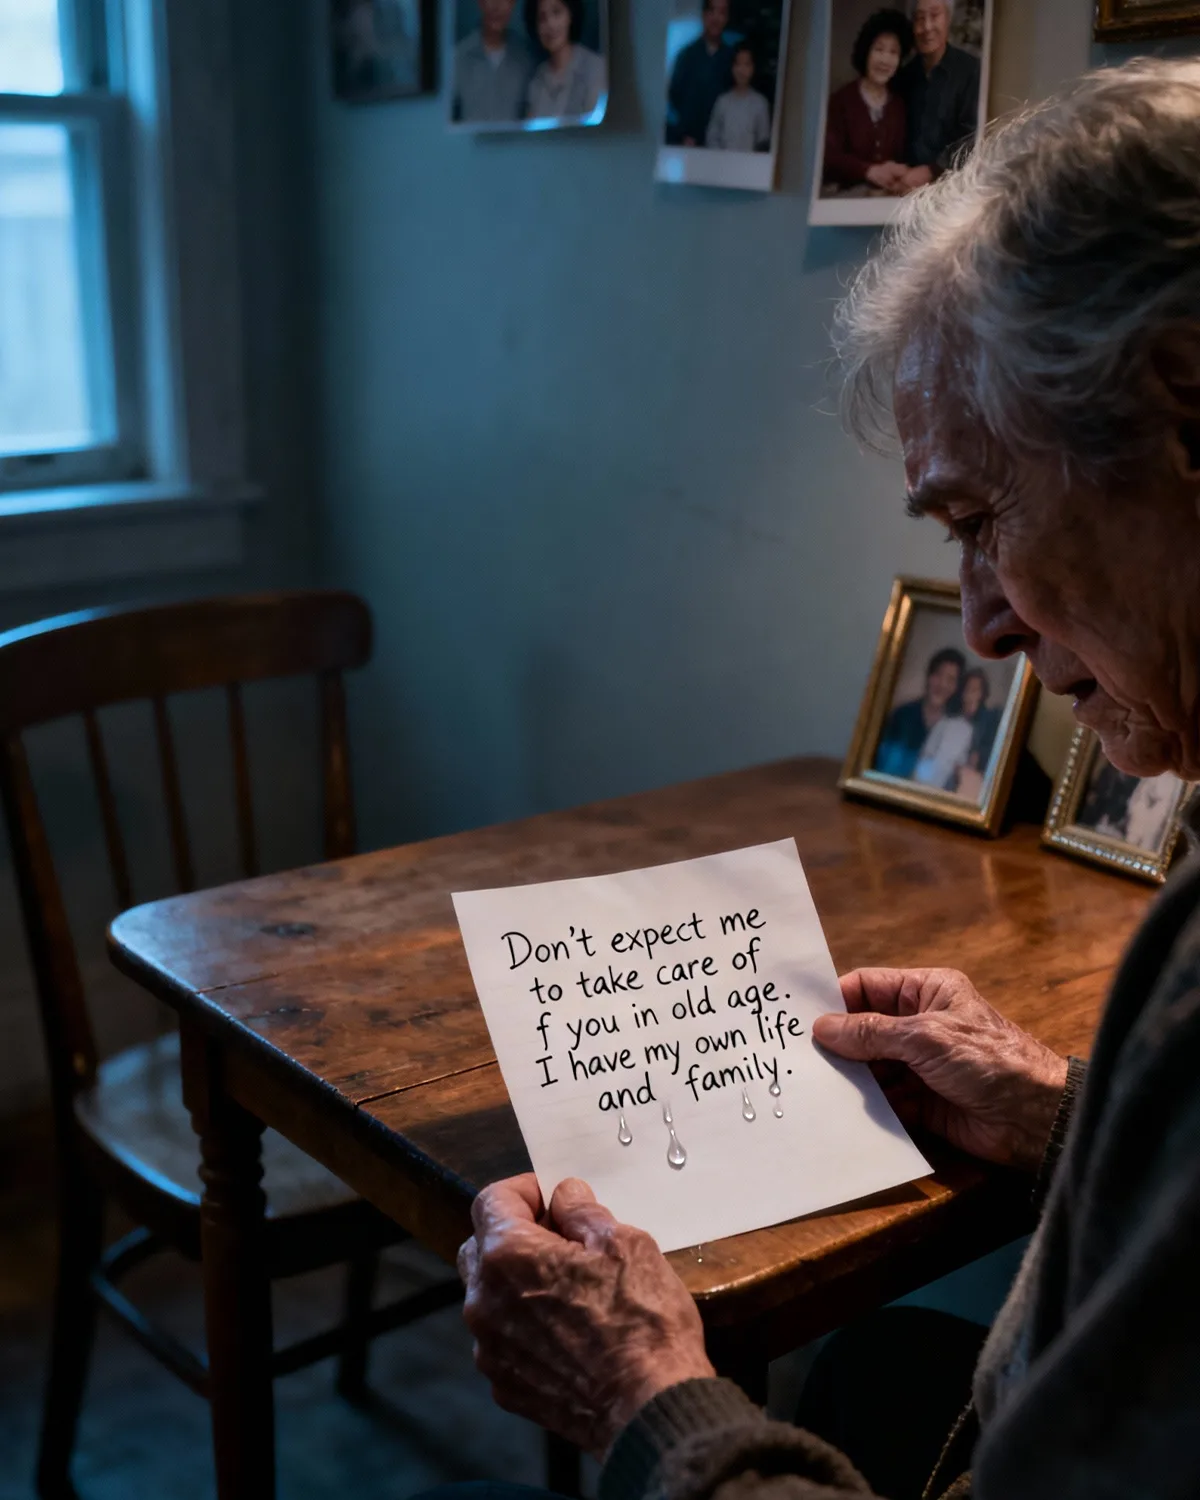 Don't expect me
to take care of
f you in old age.
I have my own life
and family.